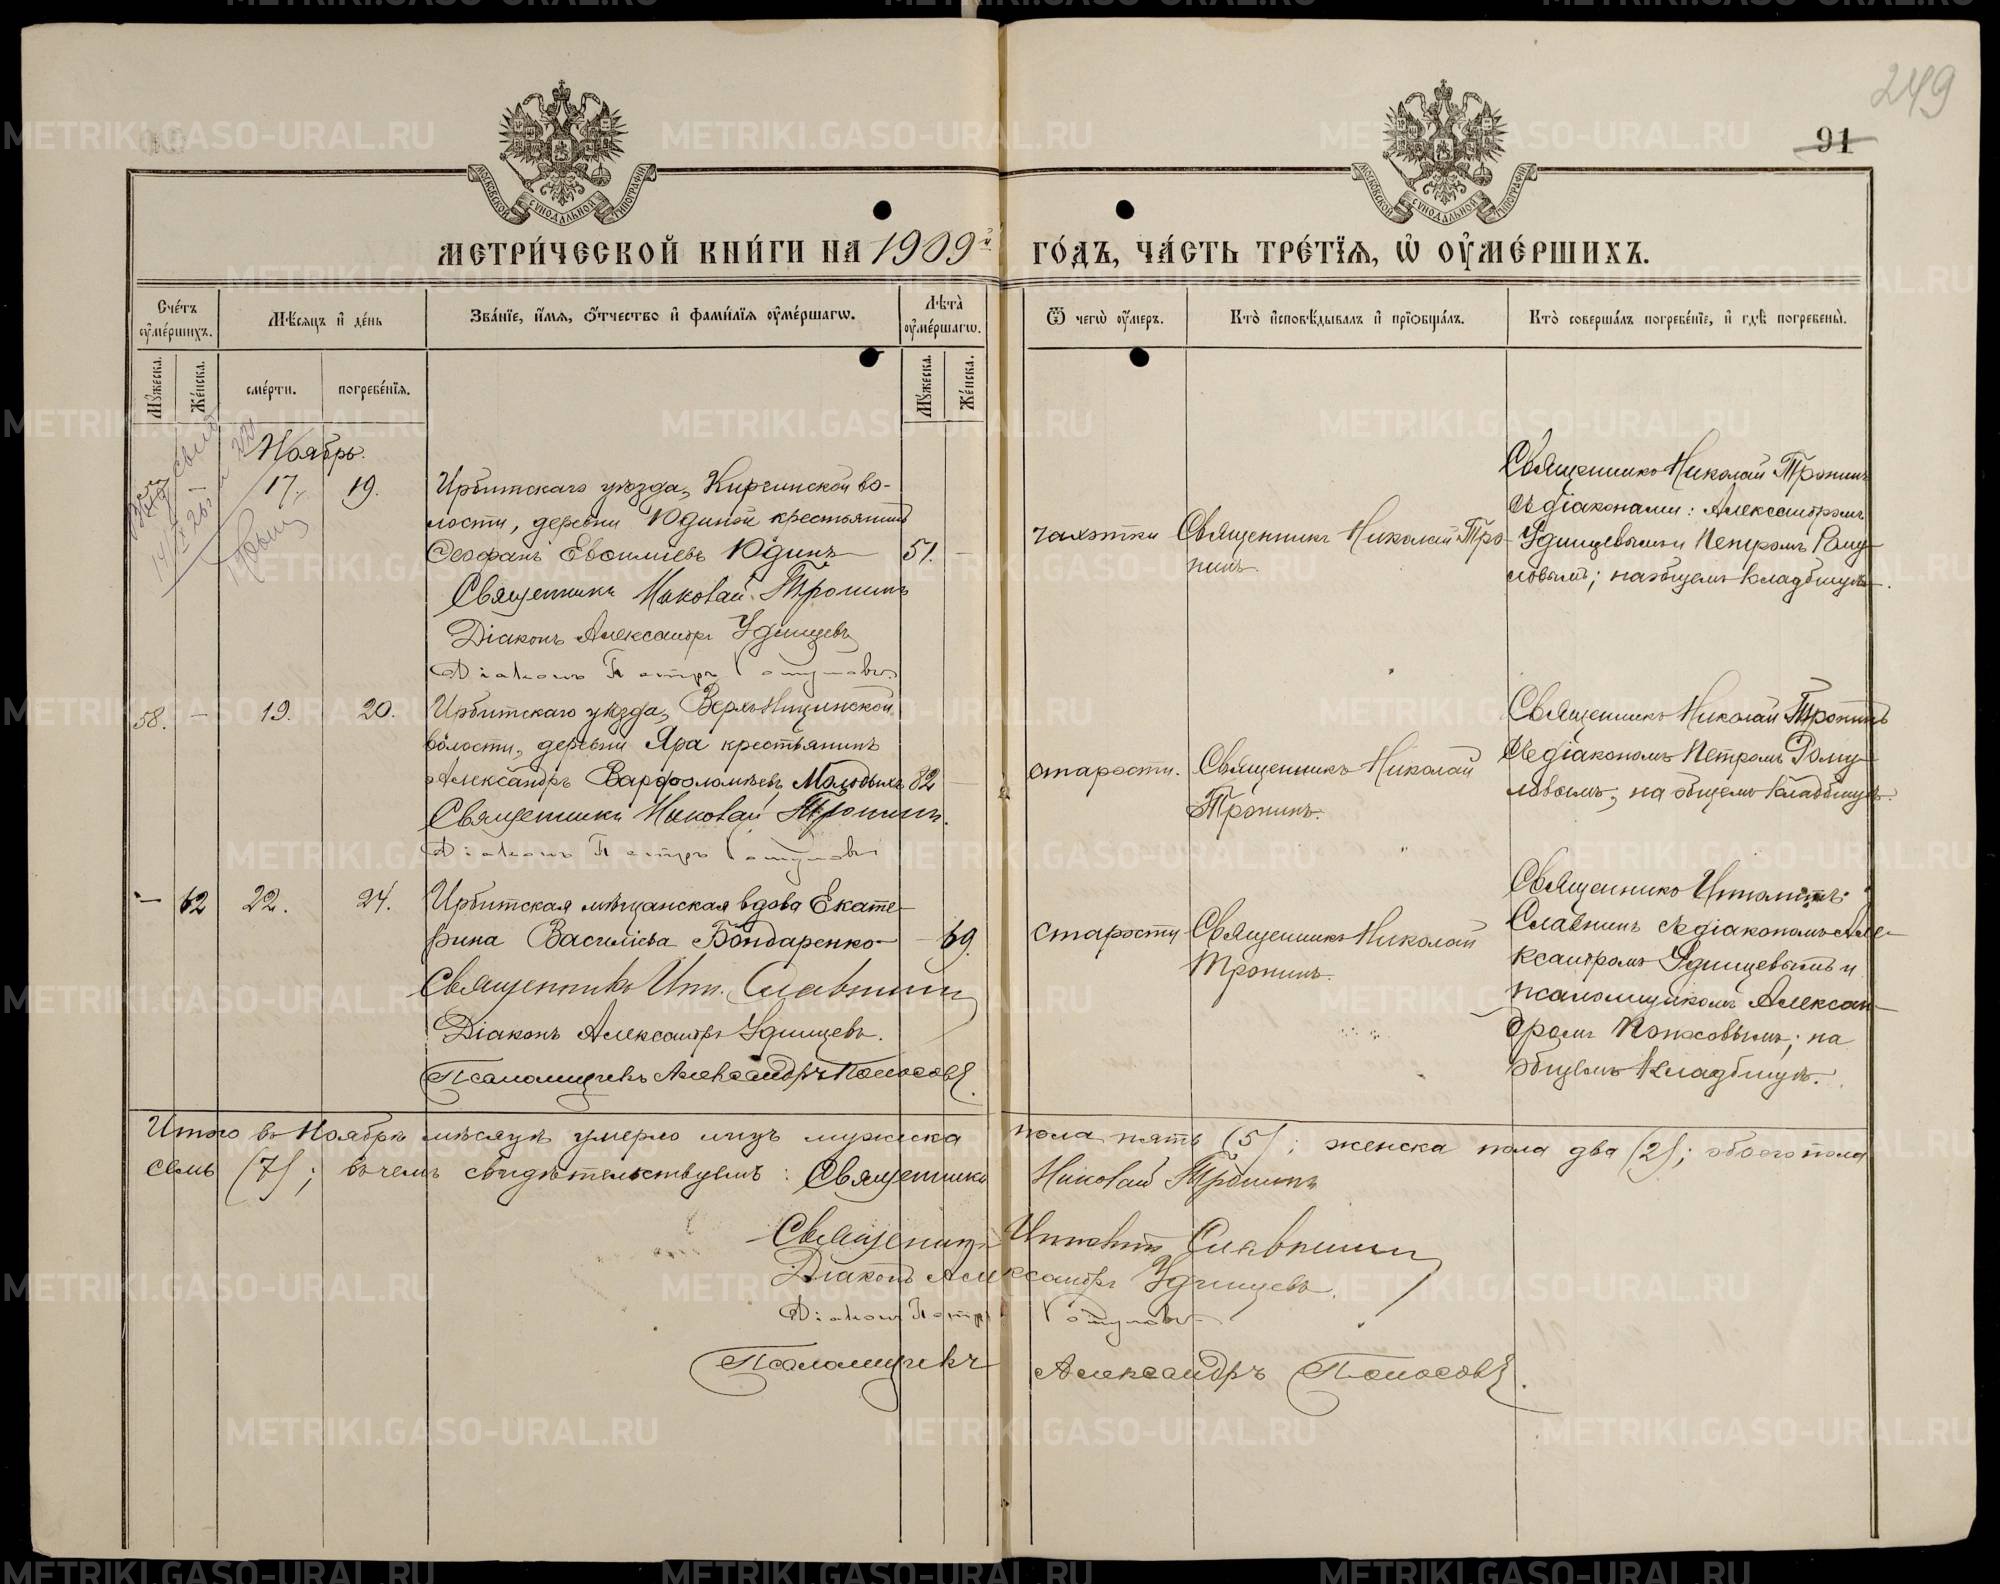 249
91
МОСКОВСКОЙ СѴНОДАЛЬНОЙ ТИПОГРАФІИ
МОСКОВСКОЙ СѴНОДАЛЬНОЙ ТИПОГРАФІИ
МЕТРИ́ЧЕСКОЙ КНИ́ГИ НА 1909й
ГО́ДЪ, ЧА́СТЬ ТРЕ́ТЇѦ, Ѡ҆ ОУ҆МЕ́РШИХЪ.
Сче́тъ оу҆ме́ршихъ.
Мѣ́сяцъ и҆ де́нь
Зва́нїе, и҆́мѧ, ѻ҆́тчество и҆ фами́лїѧ оу҆ме́ршагѡ.
Лѣта̀ оу҆ме́ршагѡ.
Ѿ чегѡ̀ оу҆́меръ.
Кто̀ и҆сповѣ́дывалъ и҆ прїѻбща́лъ.
Кто̀ соверша́лъ погребе́нїе, и҆ гдѣ̀ погребены̀.
Мꙋ́жеска.
Же́нска.
сме́рти.
погребе́нїѧ.
Мꙋ́жеска.
Же́нска.
Ноябрь.
57 — 17. 19.
Ирбитскаго уѣзда, Киргинской во-
лости, деревни Юдиной крестьянинъ
Ѳеофанъ Евсиліевъ Юдинъ 51. —
Священникъ Николай Тронинъ
Діаконъ Александръ Удинцевъ
Діаконъ Петръ Ромуловъ
чахотки
Священникъ Николай Тро-
нинъ.
Священникъ Николай Тронинъ
съ діаконами: Александромъ
Удинцевымъ и Петромъ Рому-
ловымъ; на общемъ кладбищѣ.
58. — 19. 20.
Ирбитскаго уѣзда, Верхъ-Ницинской
волости, деревни Яра крестьянинъ
Александръ Варфоломѣевъ Молодыхъ 82 —
Священникъ Николай Тронинъ.
Діаконъ Петръ Ромуловъ
старости.
Священникъ Николай
Тронинъ.
Священникъ Николай Тронинъ
съ діакономъ Петромъ Рому-
ловымъ, на общемъ кладбищѣ.
— 62 22. 24.
Ирбитская мѣщанская вдова Екате-
рина Василіева Бондаренко — 69.
Священникъ Ипп. Славнинъ
Діаконъ Александръ Удинцевъ.
Псаломщикъ Александръ Поносовъ.
старости
Священникъ Николай
Тронинъ.
Священникъ Ипполитъ
Славнинъ съ діакономъ Але-
ксандромъ Удинцевымъ и
псаломщикомъ Алексан-
дромъ Поносовымъ; на
общемъ кладбищѣ.
Итого въ Ноябрѣ мѣсяцѣ умерло лицъ мужеска пола пять (5); женска пола два (2); обоего пола
семь (7); въ чемъ свидѣтельствуемъ: Священникъ Николай Тронинъ
Священникъ Ипполитъ Славнинъ
Діаконъ Александръ Удинцевъ.
Діаконъ Петръ Ромуловъ
Псаломщикъ Александръ Поносовъ.